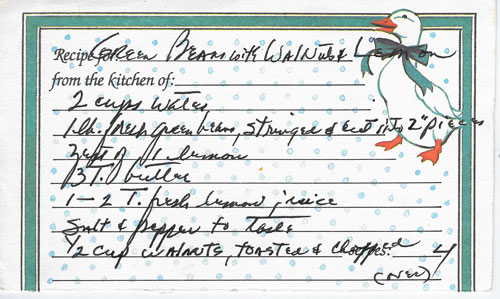 Recipe for: GREEN BEANS with WALNUTS & LEMON
from the kitchen of:
2 cups water
1 lb. fresh green beans, stringed & cut into 2" pieces
Zest of 1 lemon
3 T. butter
1-2 T. fresh lemon juice
Salt & pepper to taste
1/2 cup WALNUTS TOASTED & chopped
Serves: 4
(over)